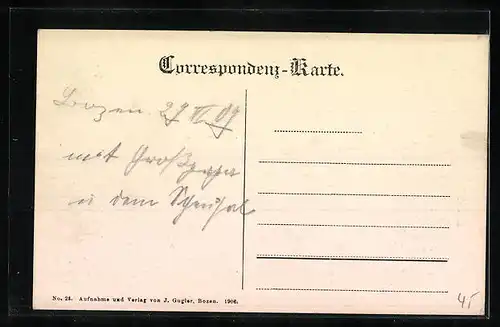 Correspondenz-Karte.
Bozen 29 VI 09
mit Großpapa
u dem Scheusal
No. 24. Aufnahme und Verlag von J. Gugler, Bozen. 1906.
45